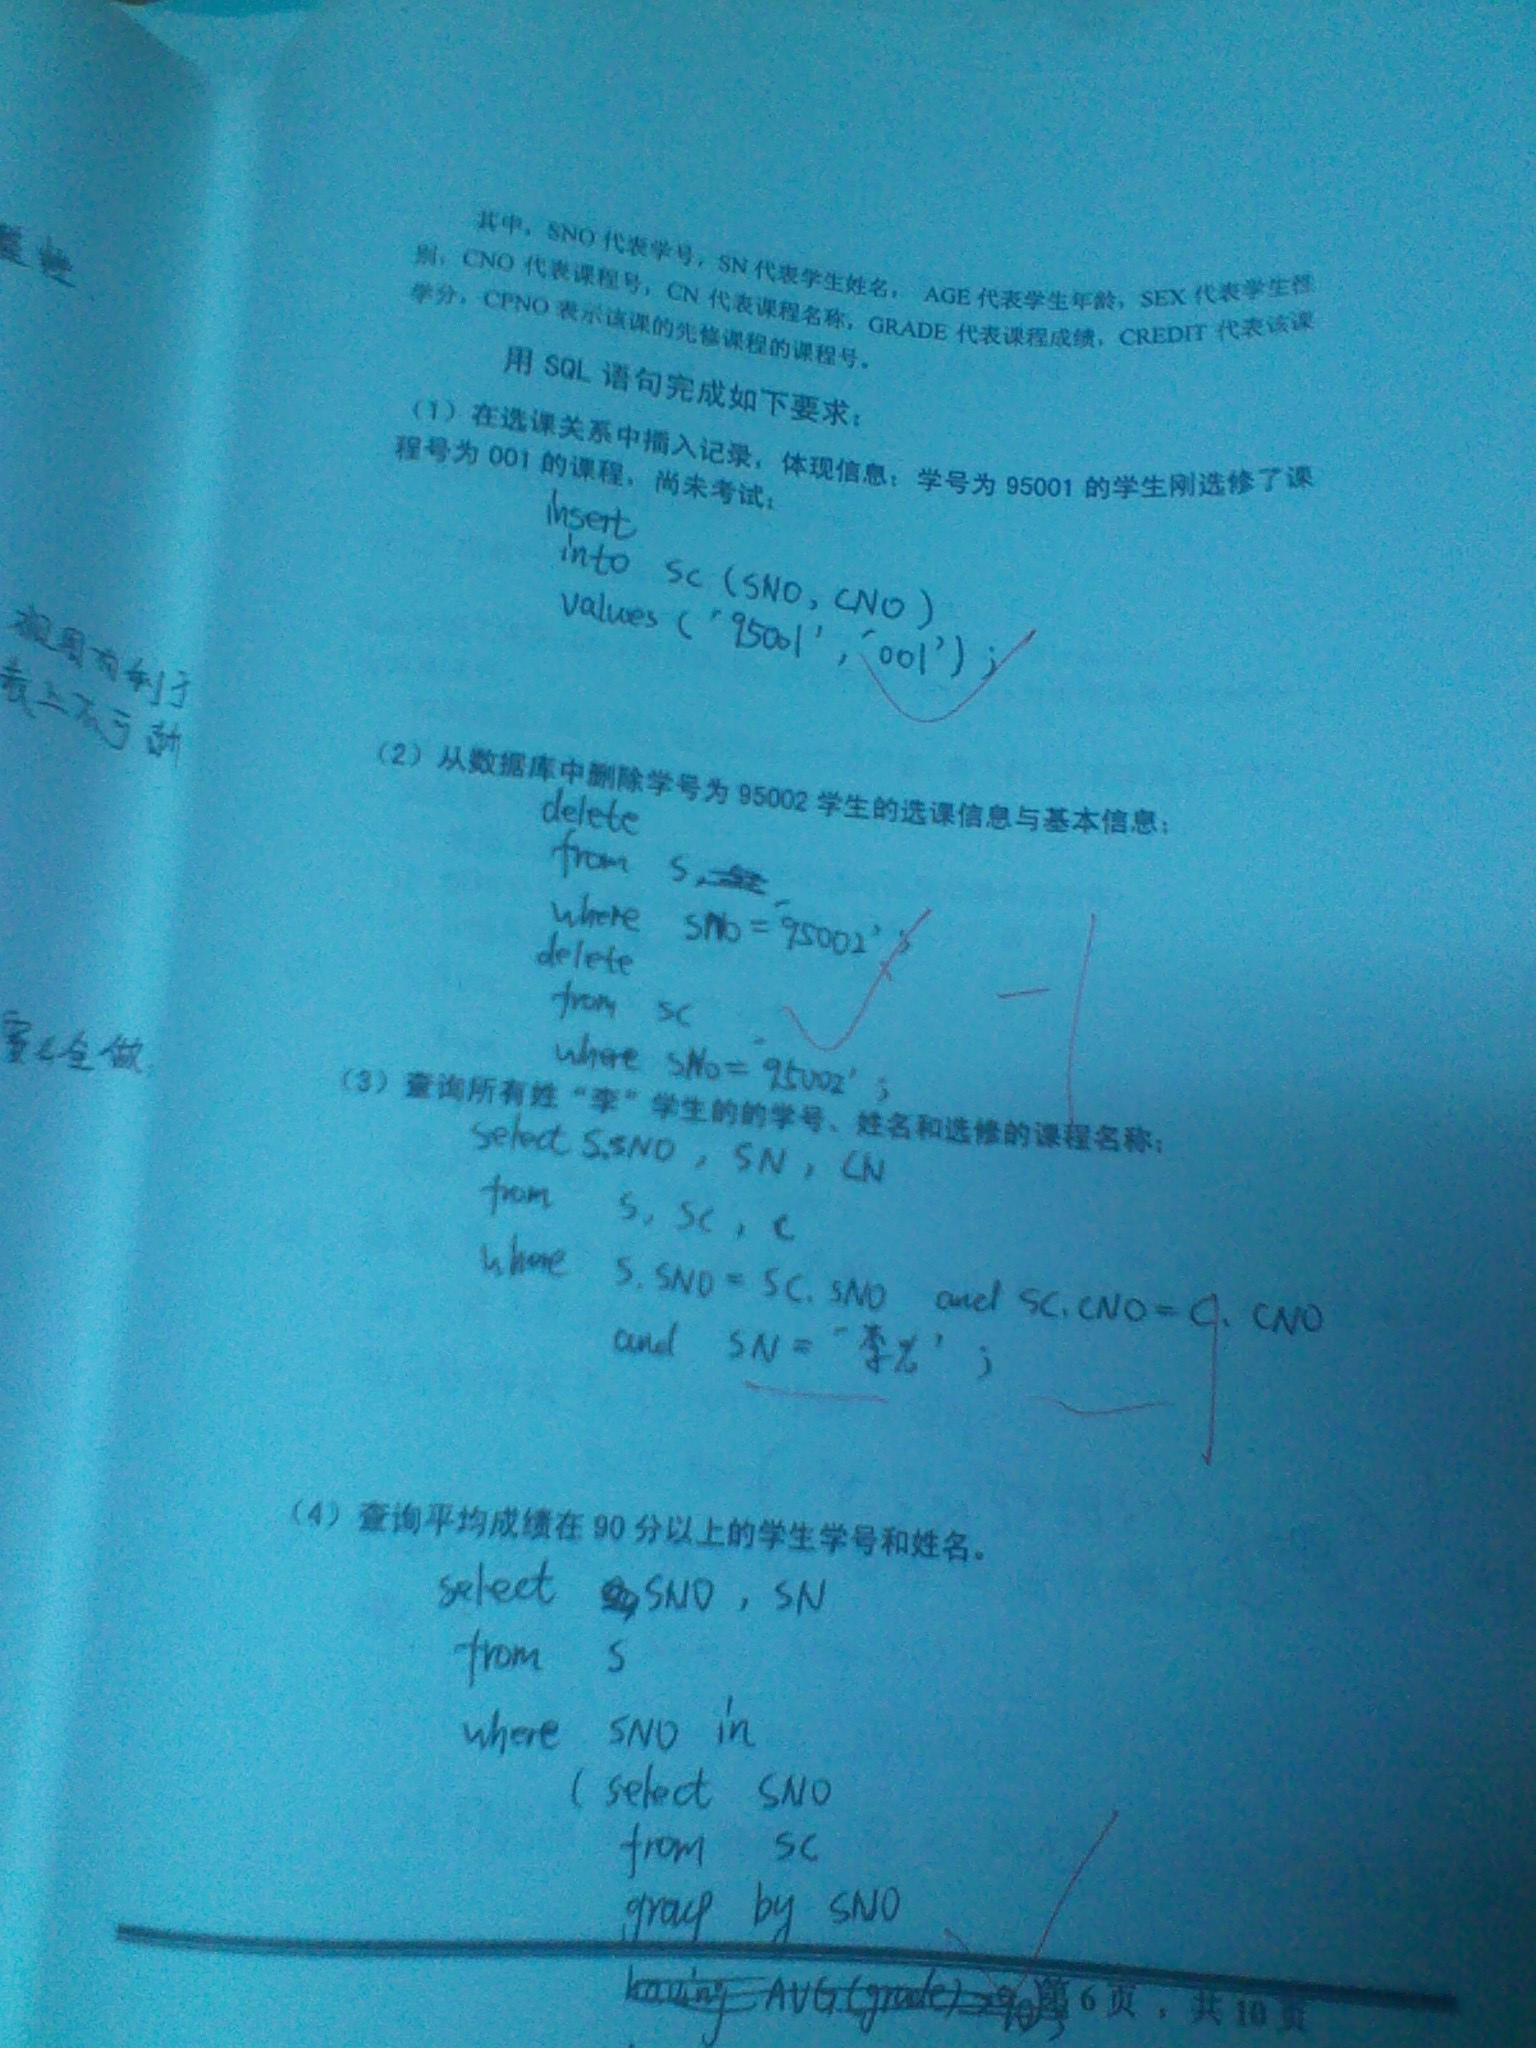 其中，SNO 代表学号，SN 代表学生姓名， AGE 代表学生年龄，SEX 代表学生性
别，CNO 代表课程号，CN 代表课程名称，GRADE 代表课程成绩，CREDIT 代表该课
学分，CPNO 表示该课的先修课程的课程号。
用 SQL 语句完成如下要求：
（1）在选课关系中插入记录，体现信息：学号为 95001 的学生刚选修了课
程号为 001 的课程，尚未考试；
insert
into SC (SNO, CNO)
values ('95001', '001');
（2）从数据库中删除学号为 95002 学生的选课信息与基本信息；
delete
from S,
where SNo = '95002';
delete
from SC
where SNo = '95002';
（3）查询所有姓“李”学生的的学号、姓名和选修的课程名称；
select S.SNO, SN, CN
from S, SC, C
where S.SNO = SC.SNO and SC.CNO = C.CNO
and SN = '李%';
（4）查询平均成绩在 90 分以上的学生学号和姓名。
select SNO, SN
from S
where SNO in
(select SNO
from SC
group by SNO
having AVG(grade)
第 6 页 ，共 10 页